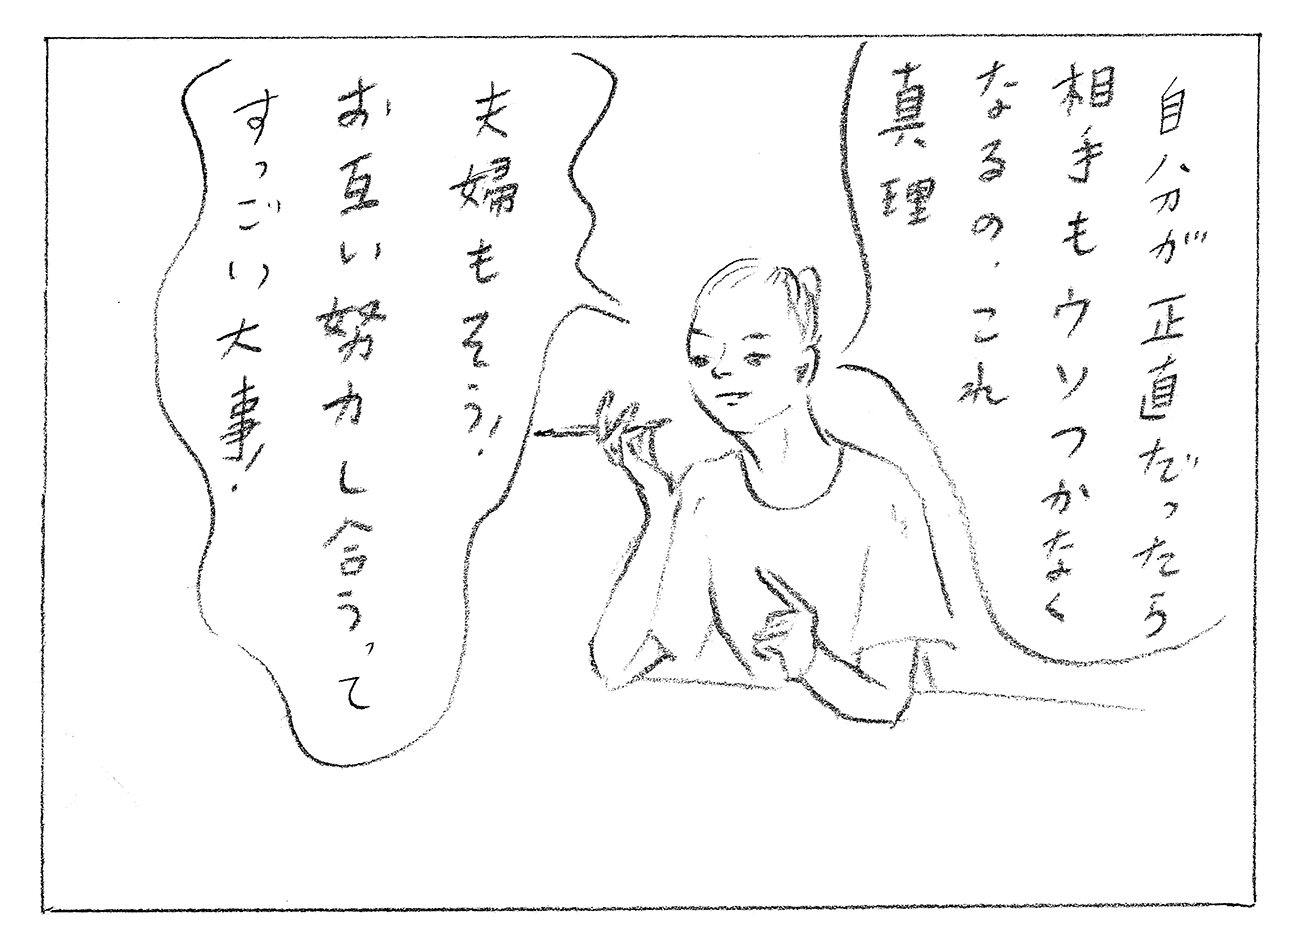 自分が正直だったら
相手もウソつかなく
なるの、これ
真理
夫婦もそう!
お互い努力し合うって
すっごい大事!